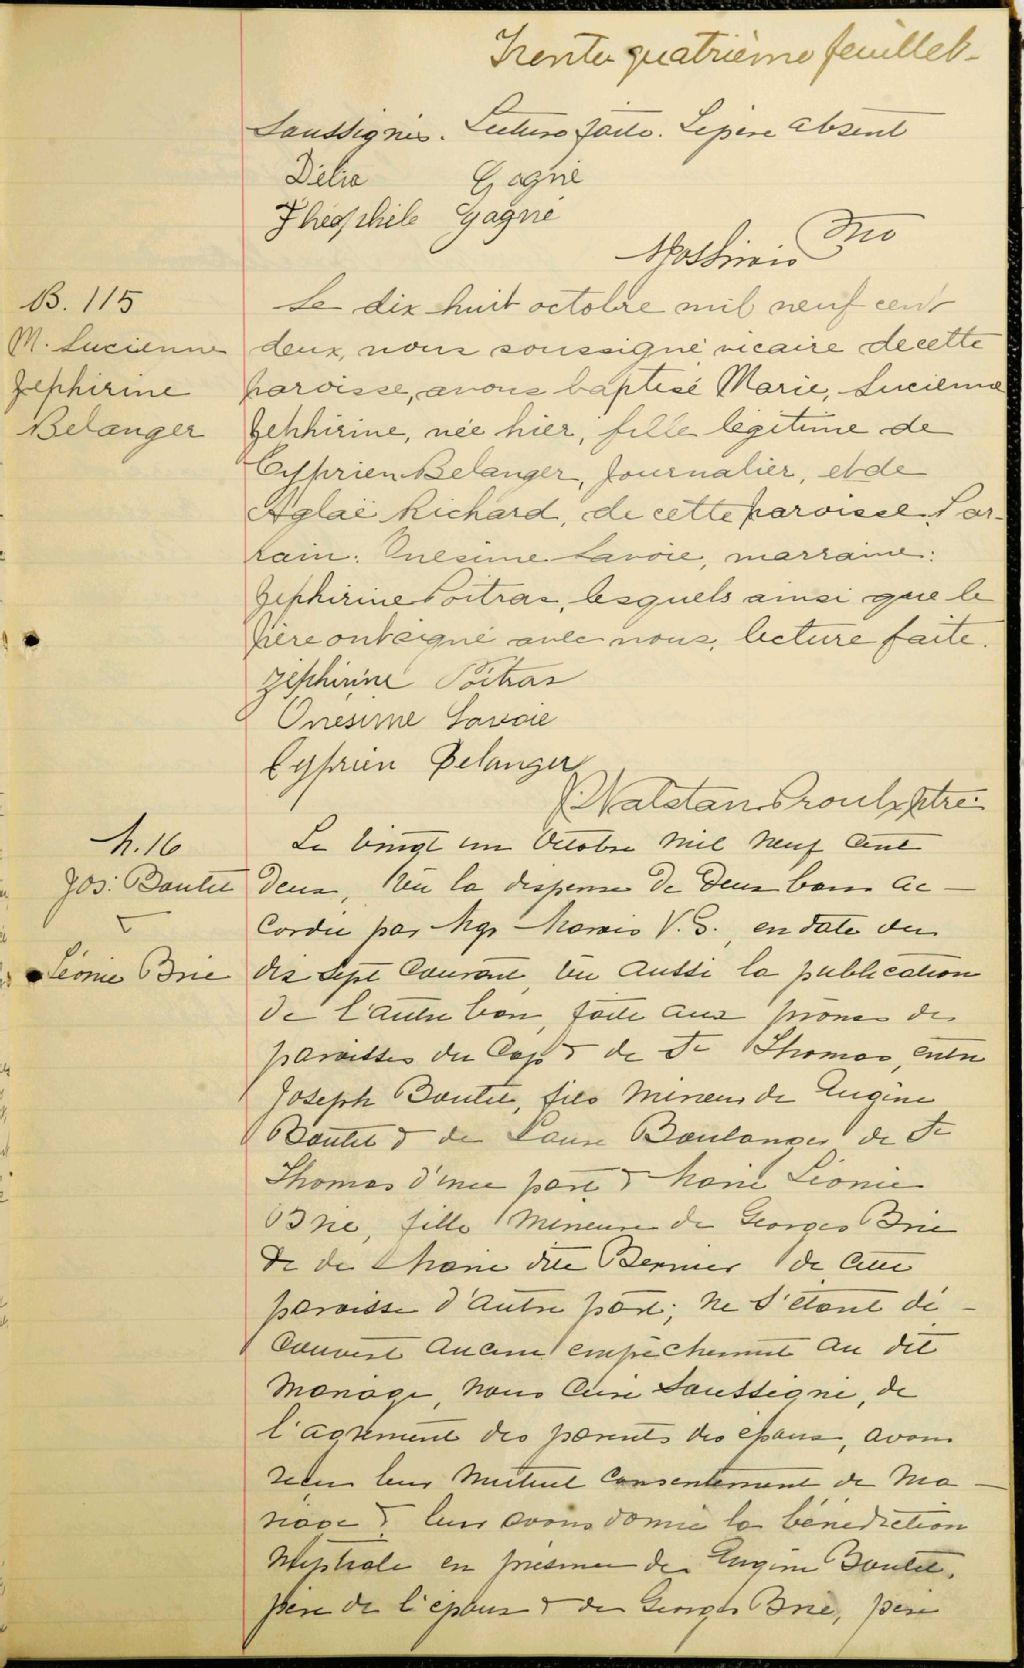 Trente quatrième feuillet-
Soussignés. Lecture faite. Le père absent
Délia Gagné
Théophile Gagné
Ptre
B. 115
M. Lucienne
Zephirine
Belanger
Le dix huit octobre mil neuf cent
deux, nous soussigné vicaire de cette
paroisse, avons baptisé Marie, Lucienne
Zephirine, née hier, fille légitime de
Cyprien Belanger, journalier, et de
Aglaë Richard, de cette paroisse. Par-
rain: Onesime Savoie, marraine:
Zephirine Poitras, lesquels ainsi que le
père ont signé avec nous, lecture faite.
Zéphirine Poitras
Onésime Savoie
Cyprien Belanger
J. Walstan Proulx, ptre.
M. 16
Jos: Boutet
&
Léonie Brie
Le vingt un Octobre mil neuf cent
deux, Vu la dispense de deux bans ac-
cordée par Mgr Marois V.G., en date du
dix sept courant, vu aussi la publication
de l'autre ban, faite aux prônes des
paroisses du Cap & de St Thomas, entre
Joseph Boutet, fils mineur de Eugène
Boutet & de Laure Boulanger de St
Thomas d'une part & Marie Léonie
Brie, fille mineure de Georges Brie
& de Marie dite Bernier de cette
paroisse d'autre part; ne s'étant dé-
couvert aucun empêchement au dit
mariage, nous curé soussigné, de
l'agrément des parents des époux, avons
reçu leur mutuel consentement de ma-
riage & leur avons donné la bénédiction
nuptiale en présence de Eugène Boutet,
père de l'époux & de Georges Brie, père